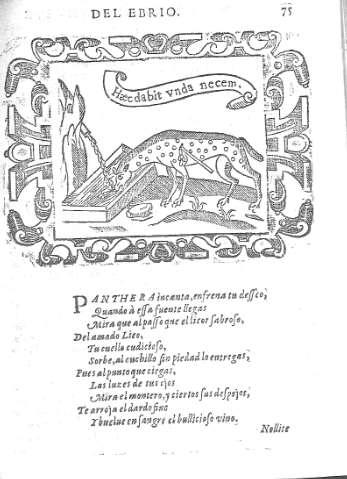 DEL EBRIO.
75
Hæc dabit vnda necem.
PANTHERA incauta, enfrena tu desseo,
Quando à essa fuente llegas
Mira que al passo que el licor sabroso,
Del amado Lieo,
Tu cuello cudicioso,
Sorbe, al cuchillo sin piedad lo entregas,
Pues al punto que ciegas,
Las luzes de tus ojos
Mira el montero, y ciertos sus despojos,
Te arroja el dardo fino
Y buelue en sangre el bullicioso vino.
Nollite